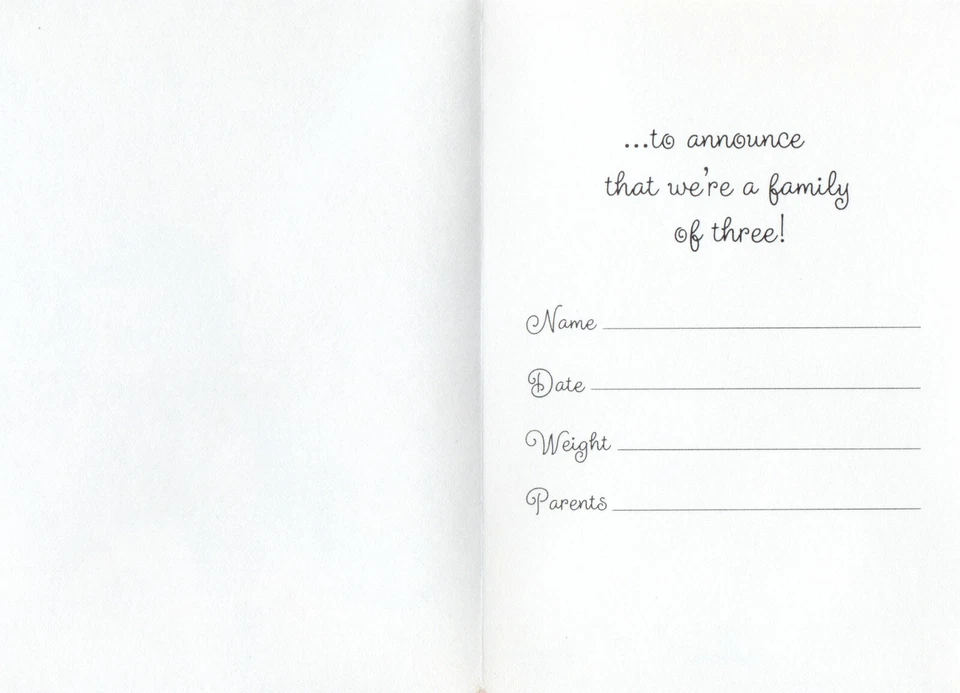 ...to announce
that we're a family
of three!
Name
Date
Weight
Parents